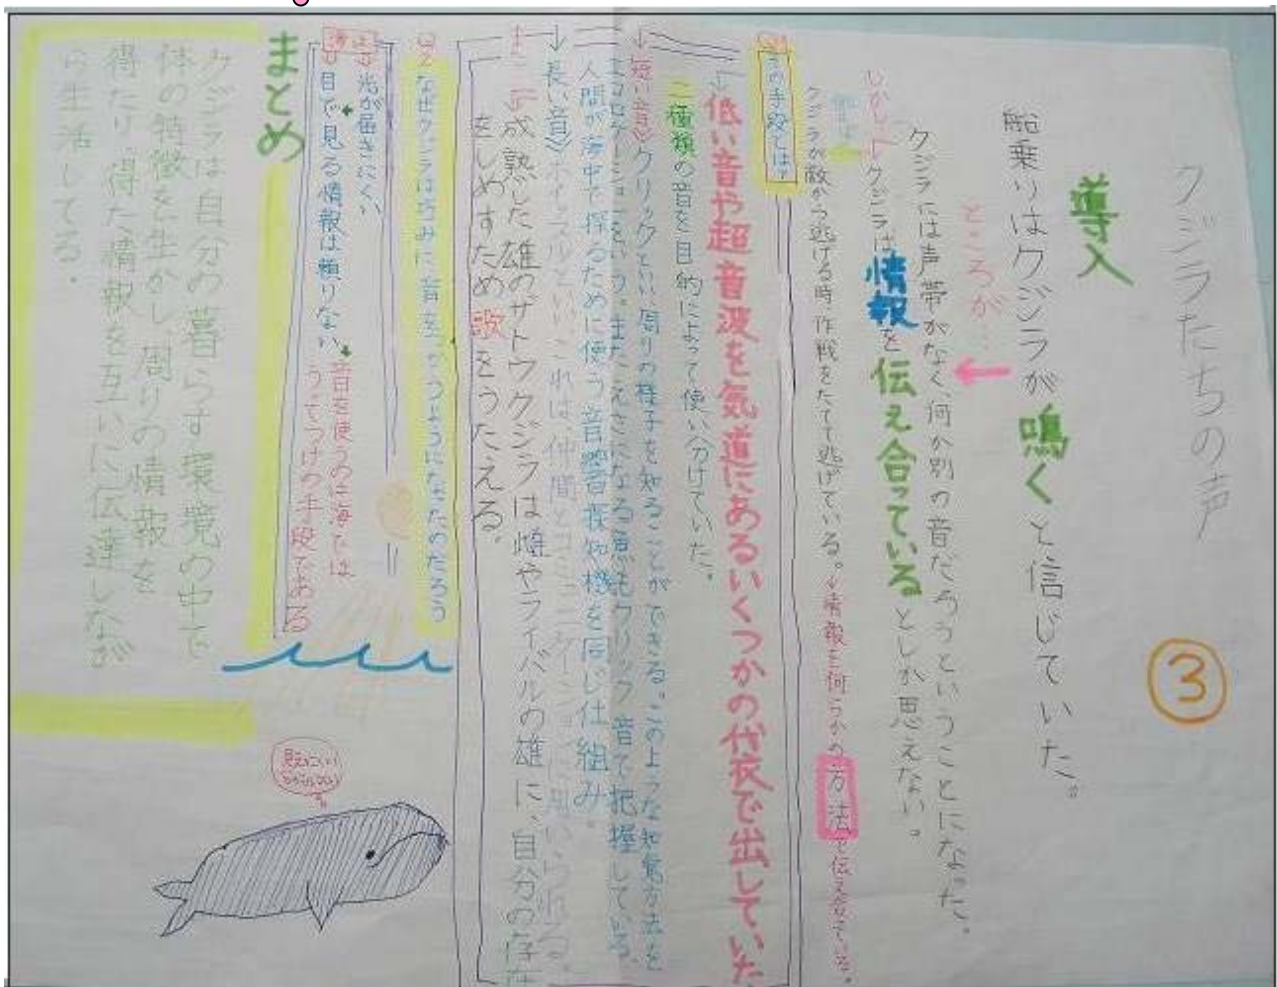 クジラたちの声
③
導入
船乗りはクジラが鳴くと信じていた。
ところが…
クジラには声帯がなく、何か別の音だろうということになった。
しかし クジラは情報を伝え合っているとしか思えない。
クジラが敵から逃げる時、作戦をたてて逃げている。↓情報を何らかの方法で伝え合っている。
その手段とは?
↓低い音や超音波を気道にあるいくつかの代衣で出していた
二種類の音を目的によって使い分けていた。
↓短い音》クリックといい周りの様子を知ることができる。このような知覚方法を
エコロケーションという。またえさになる魚もクリック音で把握している。
人間が海中で探るために使う音響探知機を同じ仕組み。
↓長い音》ホイッスルといい、これは、仲間とコミュニケーションに用いられる。
成熟した雄のザトウクジラは雌やライバルの雄に、自分の存在
をしめすため歌をうたえる。
なぜクジラは巧みに音をつかうようになったのだろう
光が届きにくい
目で見る情報は頼りない
音を使うのは海では
うってつけの手段である
まとめ
クジラは自分の暮らす環境の中で
体の特徴を生かし、周りの情報を
得たり、得た情報を互いに伝達しなが
ら生活してる.